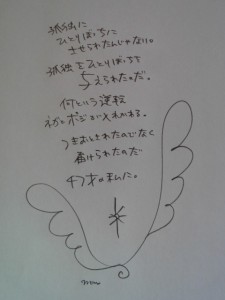 孤独に
ひとりぼっちに
させられたんじゃない。
孤独をひとりぼっちを
与えられたのだ。
何という逆転
ネガとポジが入れかわる。
つきおとされたのでなく
届けられたのだ
の私に。